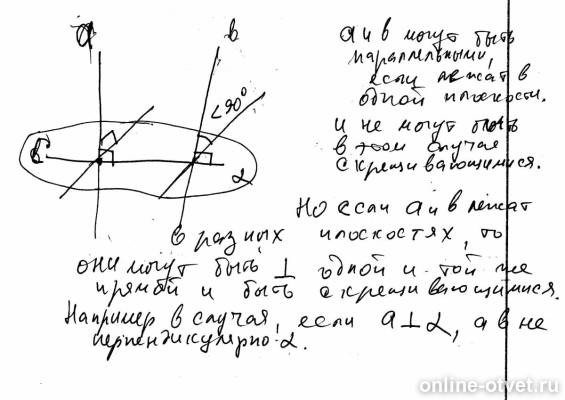 a
в
<90°
с
α
а и в могут быть
параллельными,
если лежат в
одной плоскости.
и не могут быть
в этом случае
скрещивающимися.
Но если а и в лежат
в разных плоскостях, то
они могут быть ⊥ одной и той же
прямой и быть скрещивающимися.
Например в случая, если а⊥α, а в не
перпендикулярно α.
online-otvet.ru